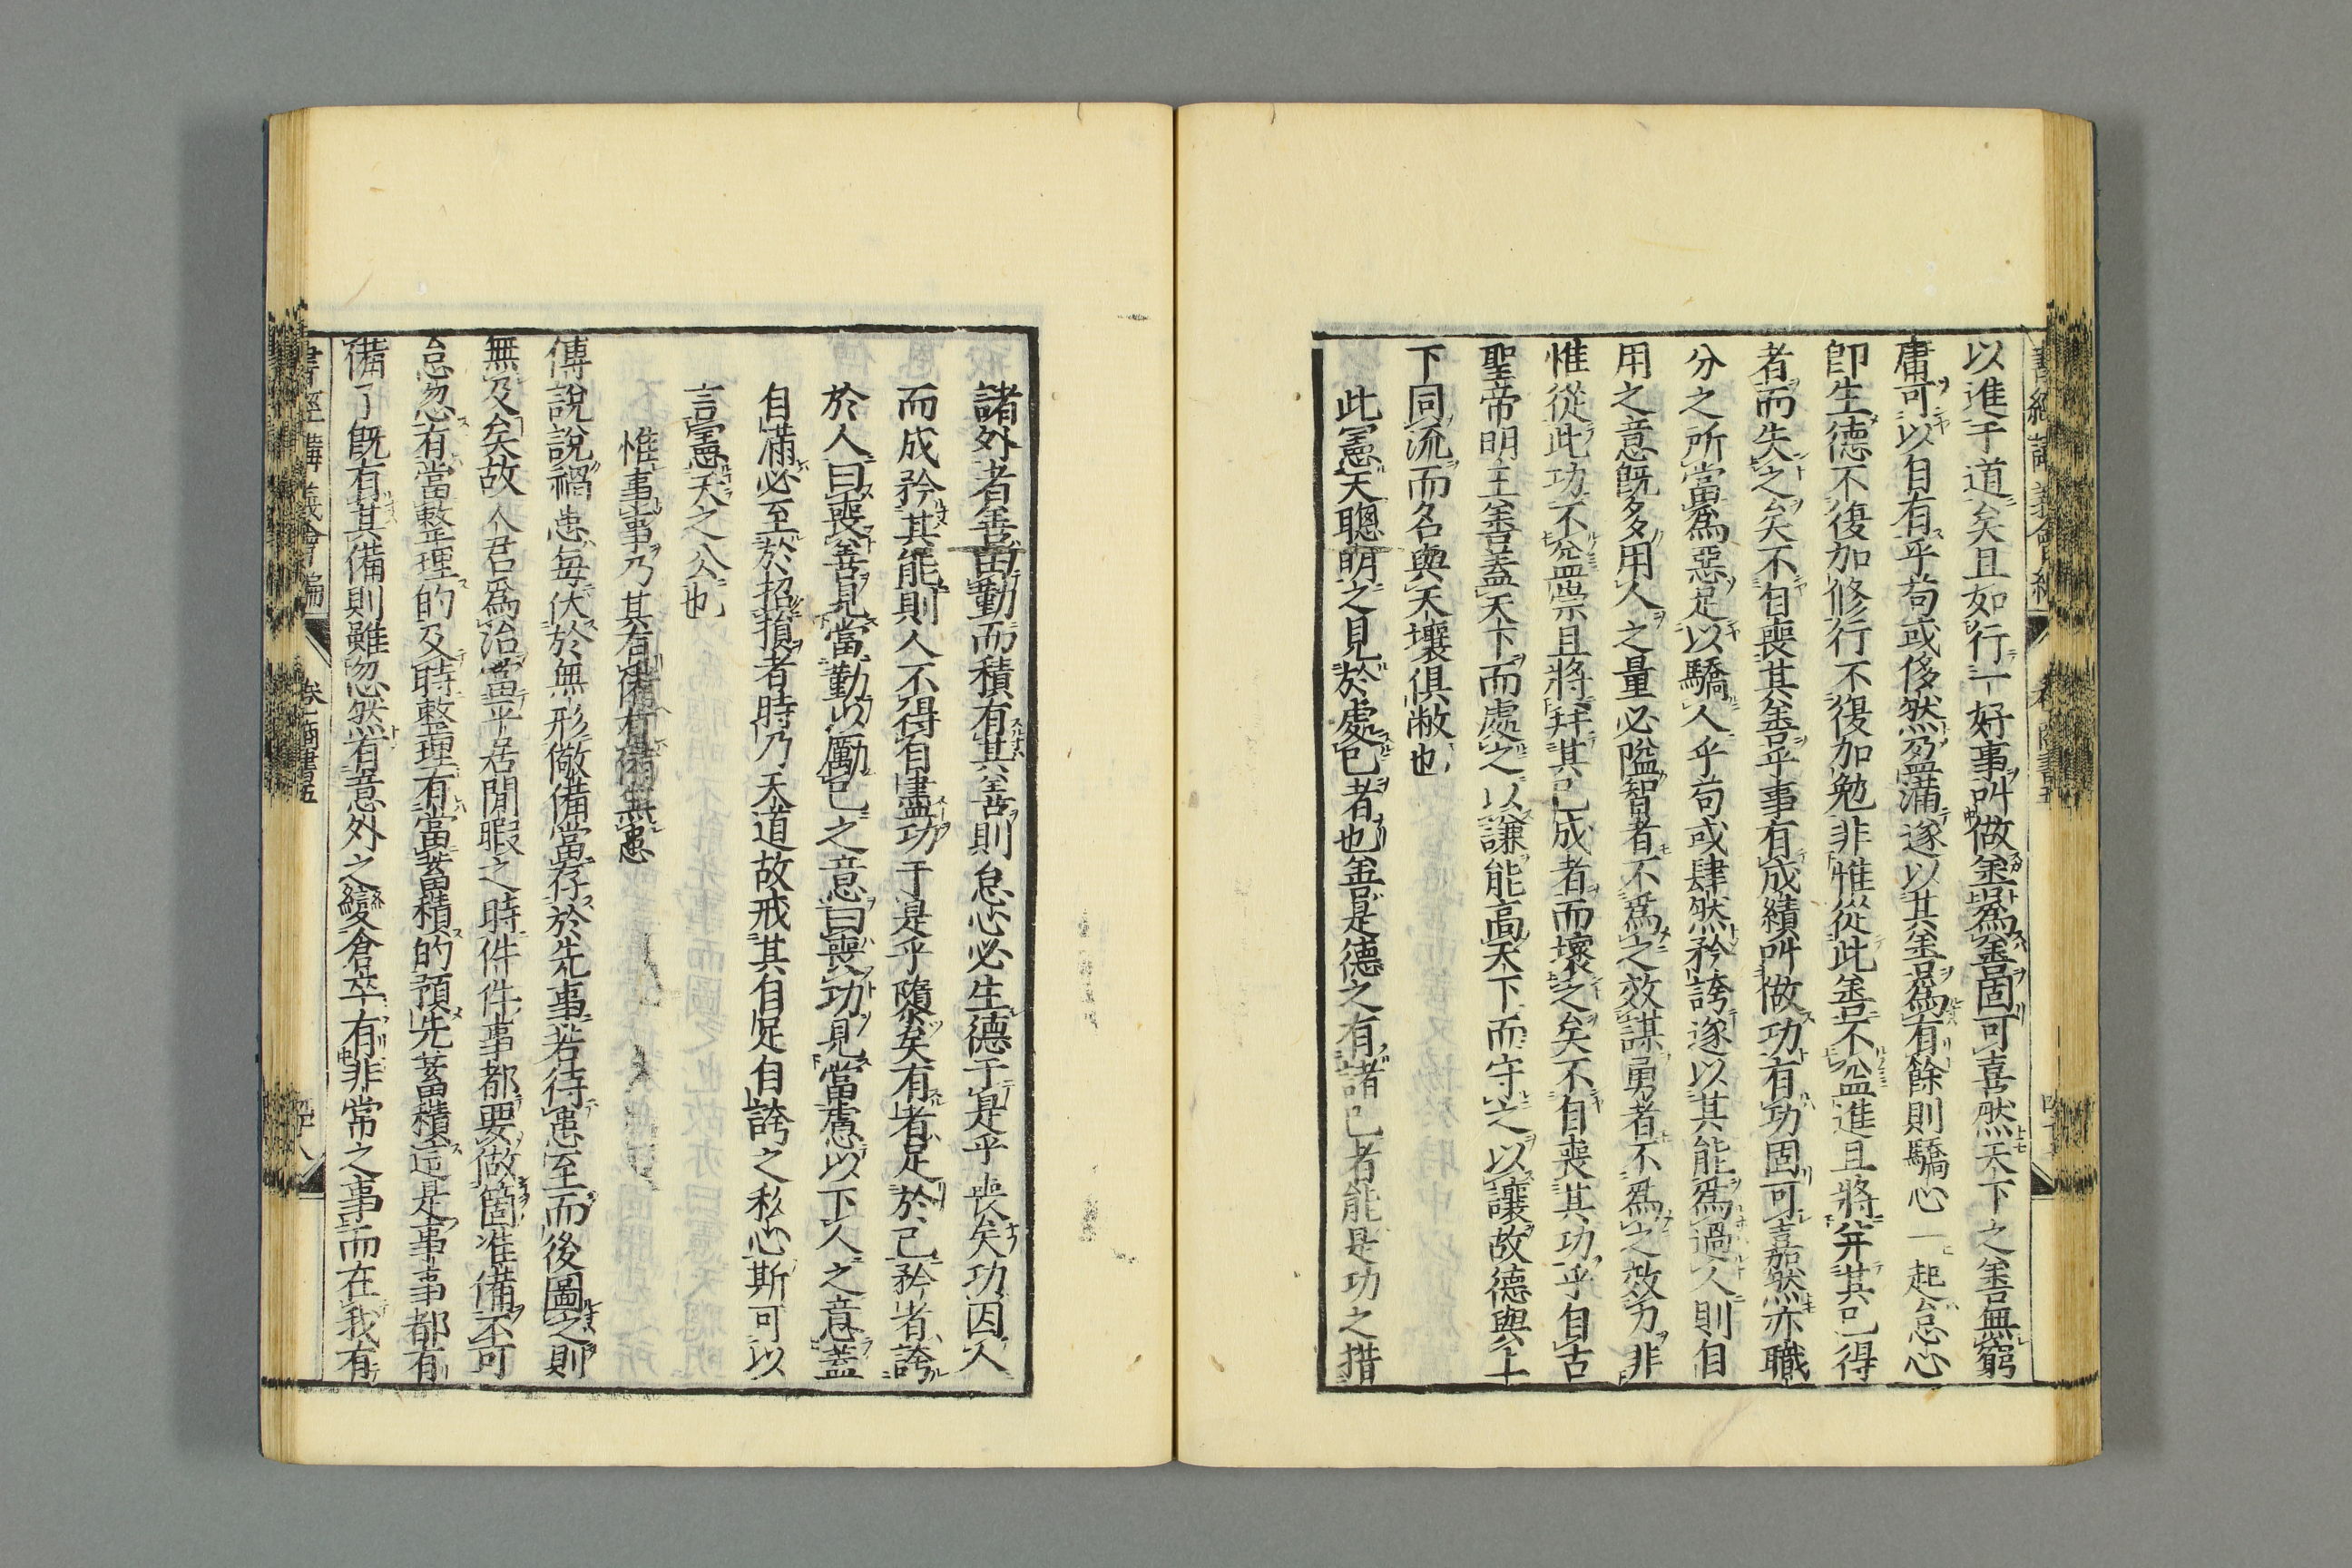 以進于道矣且如行一好事叫做善爲善固可喜然天下之善無窮
庸可以自有乎苟或侈然盈滿遂以其善爲有餘則驕心一起怠心
卽生德不復加修行不復加勉非惟從此善不益進且將并其已得
者而失之矣不自喪其善乎事有成績叫做功有功固可嘉然亦職
分之所當爲惡足以驕人乎苟或肆然矜誇遂以其能爲過人則自
用之意旣多用人之量必隘智者不爲之效謀勇者不爲之效力非
惟從此功不益崇且將并其已成者而壞之矣不自喪其功乎自古
聖帝明主善蓋天下而處之以謙能高天下而守之以讓故德與上
下同流而名與天壤俱敝也
此憲天聰明之見於處已者也善是德之有諸已者能是功之措
諸外者善由勤而積有其善則怠心必生德于是乎喪矣功因人
而成矜其能則人不得自盡功于是乎隳矣有者足於己矜者誇
於人曰喪善見當勤以勵己之意曰喪功見當慮以下人之意蓋
自滿必至於招損者時乃天道故戒其自足自誇之私心斯可以
言憲天之公也
惟事事乃其有備有備無患
傅說說禍患每伏於無形儆備當存於先事若待患至而後圖之則
無及矣故人君爲治當平居閒暇之時件件事都要做箇准備不可
怠忽有當整理的及時整理有當蓄積的預先蓄積這是事事都有
備了旣有其備則雖忽然有意外之變倉卒有非常之事而在我有
書經講義會編 卷 商書五